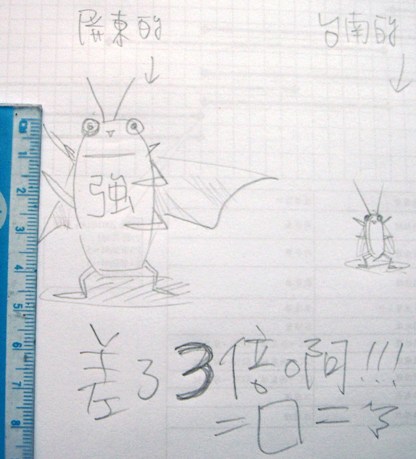 屏東的
台南的
強
差了3倍啊!!!
=口=å
1
2
3
4
5
6
7
8